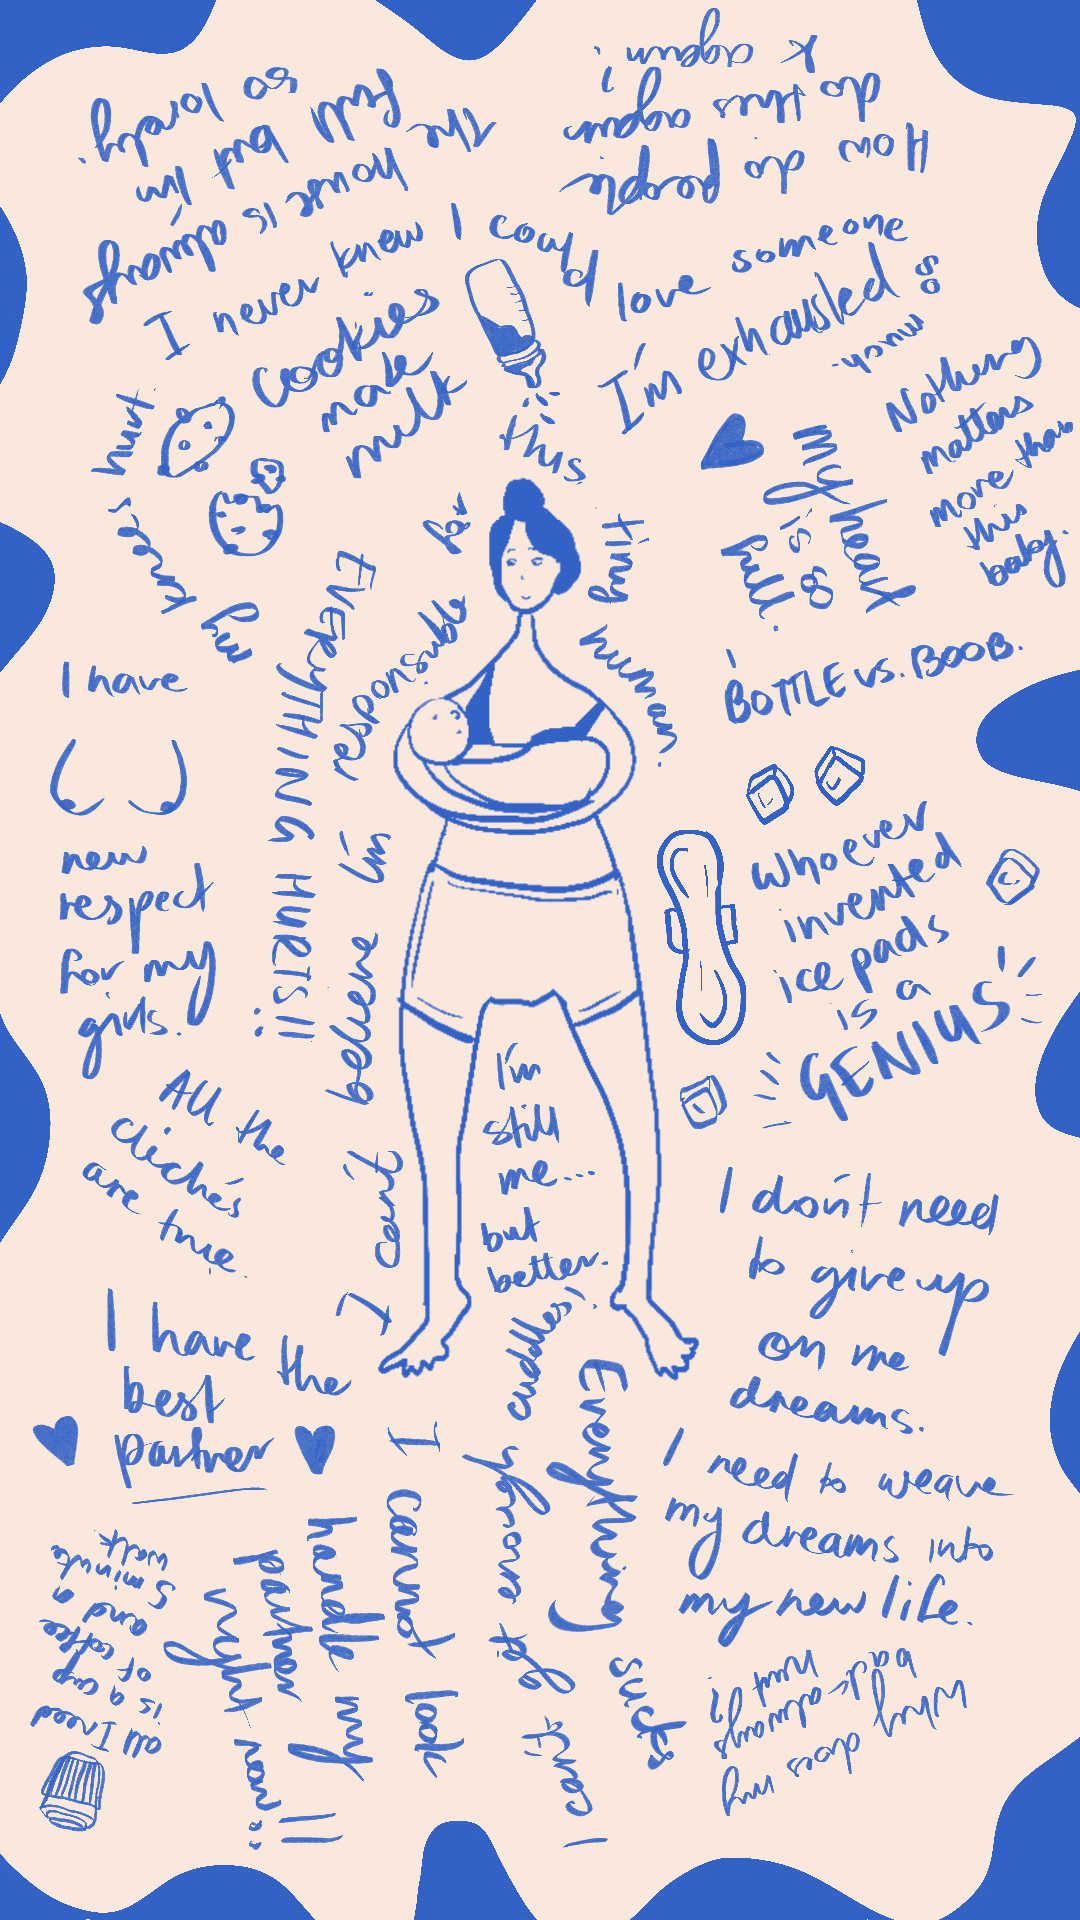 The house is always
full but I'm
so lonely.
How do people
do this again
& again?
I never knew I could love someone so much.
cookies
make
milk
I'm exhausted
Nothing
matters
more than
this
baby.
my heart
is so
full.
my knees hurt
EVERYTHING HURTS!!
I can't believe I'm responsible for this tiny human.
BOTTLE vs. BOOB.
I have
new
respect
for my
girls.
Whoever
invented
ice pads
is a
GENIUS
I'm
still
me...
but
better.
All the
cliché's
are true.
I don't need
to give up
on me
dreams.
I need to weave
my dreams into
my new life.
I have the
best
partner
I can't get enough cuddles!
Everything sucks
I cannot look
handle my
partner
right now!!
all I need
is a cup
of coffee
and a
5 minute
walk
Why does my
back always
hurt?